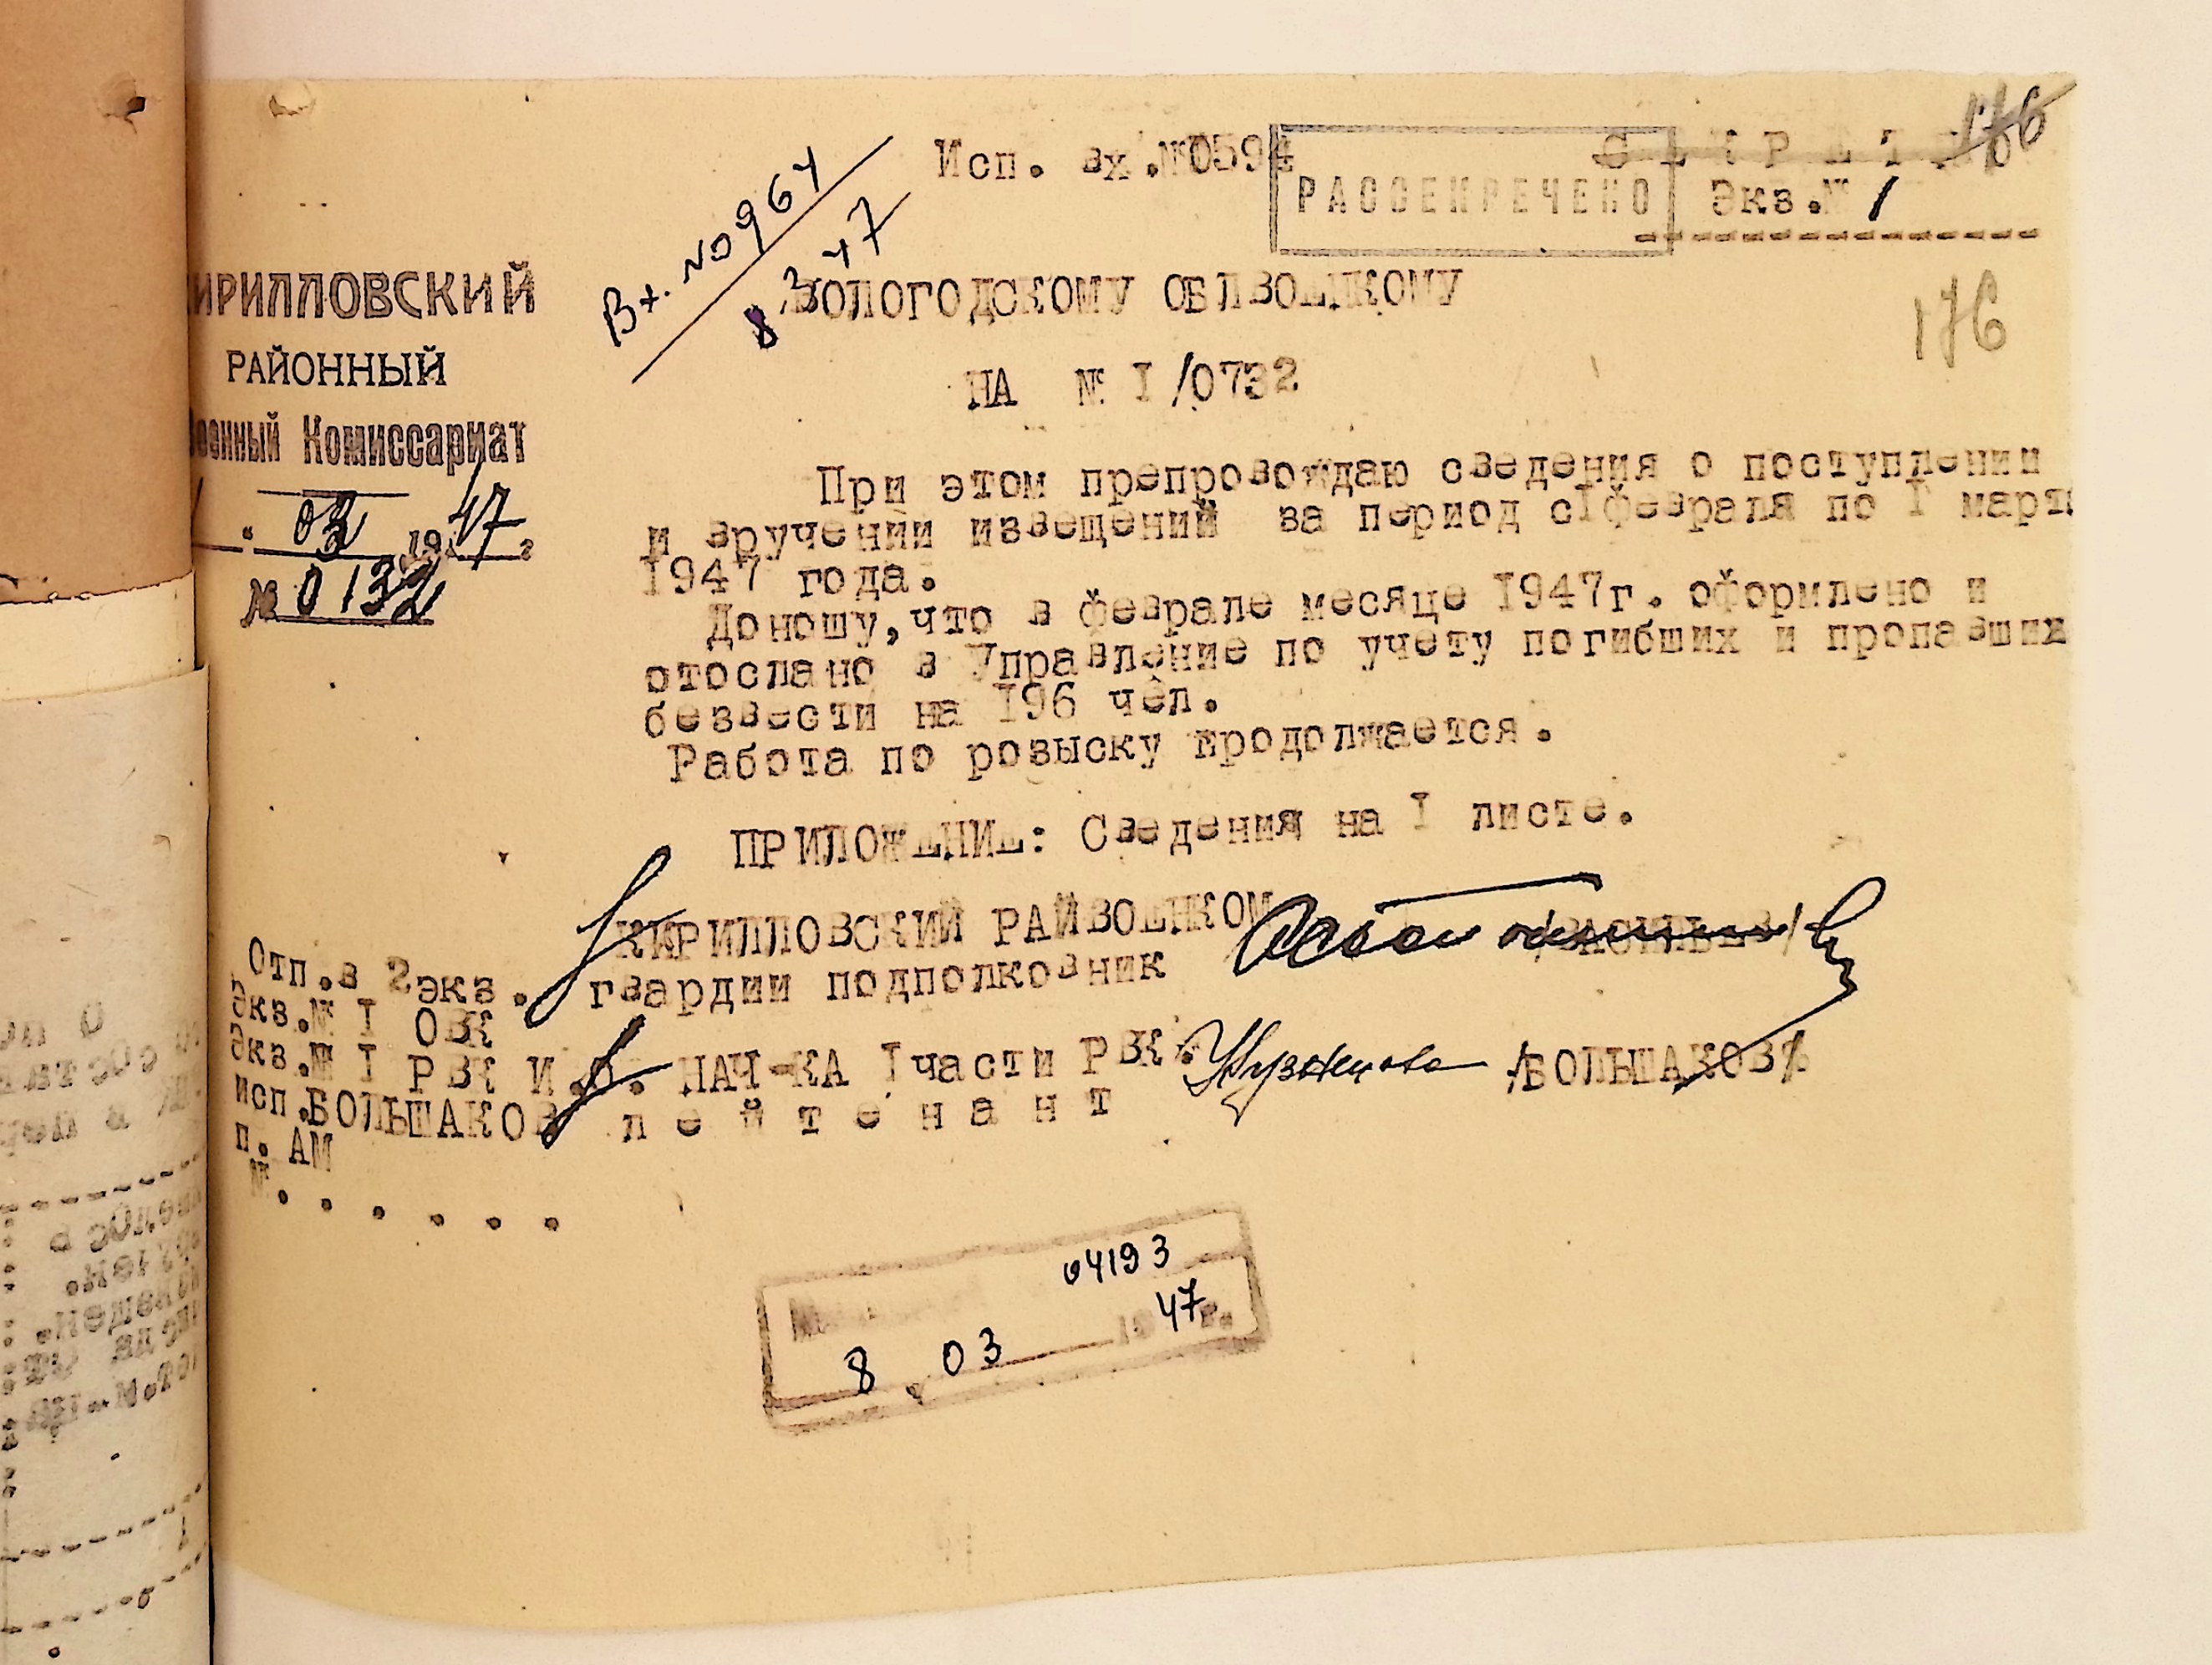 Исп. вх.№0594
СЕКРЕТНО
176
РАССЕКРЕЧЕНО
Экз.№ 1
Вх. №0964
8 3 47
176
КИРИЛЛОВСКИЙ
РАЙОННЫЙ
Военный Комиссариат
" 03 1947 г
№ 0132
ВОЛОГОДСКОМУ ОБЛВОЕНКОМУ
НА № I/0732
При этом препровождаю сведения о поступлении
и вручении извещений за период сIфевраля по I марта
1947 года.
Доношу,что в феврале месяце 1947г. оформлено и
отослано в Управление по учету погибших и пропавших
безвести на 196 чел.
Работа по розыску продолжается.
ПРИЛОЖЕНИЕ: Сведения на I листе.
КИРИЛЛОВСКИЙ РАЙВОЕНКОМ
гвардии подполковник
И.О. НАЧ-КА Iчасти РВК: /БОЛЬШАКОВ/
лейтенант
Отп.в 2экз.
Экз.№ I ОВК
Экз.№ I РВК
исп.БОЛЬШАКОВ
п. АМ
№......
04193
8 03 1947г.